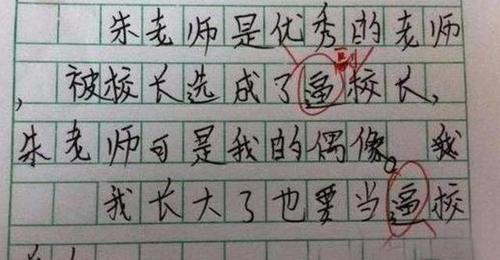 朱老师是优秀的老师
副
,被校长选成了逼校长,
朱老师可是我的偶像。我
我长大了也要当逼校